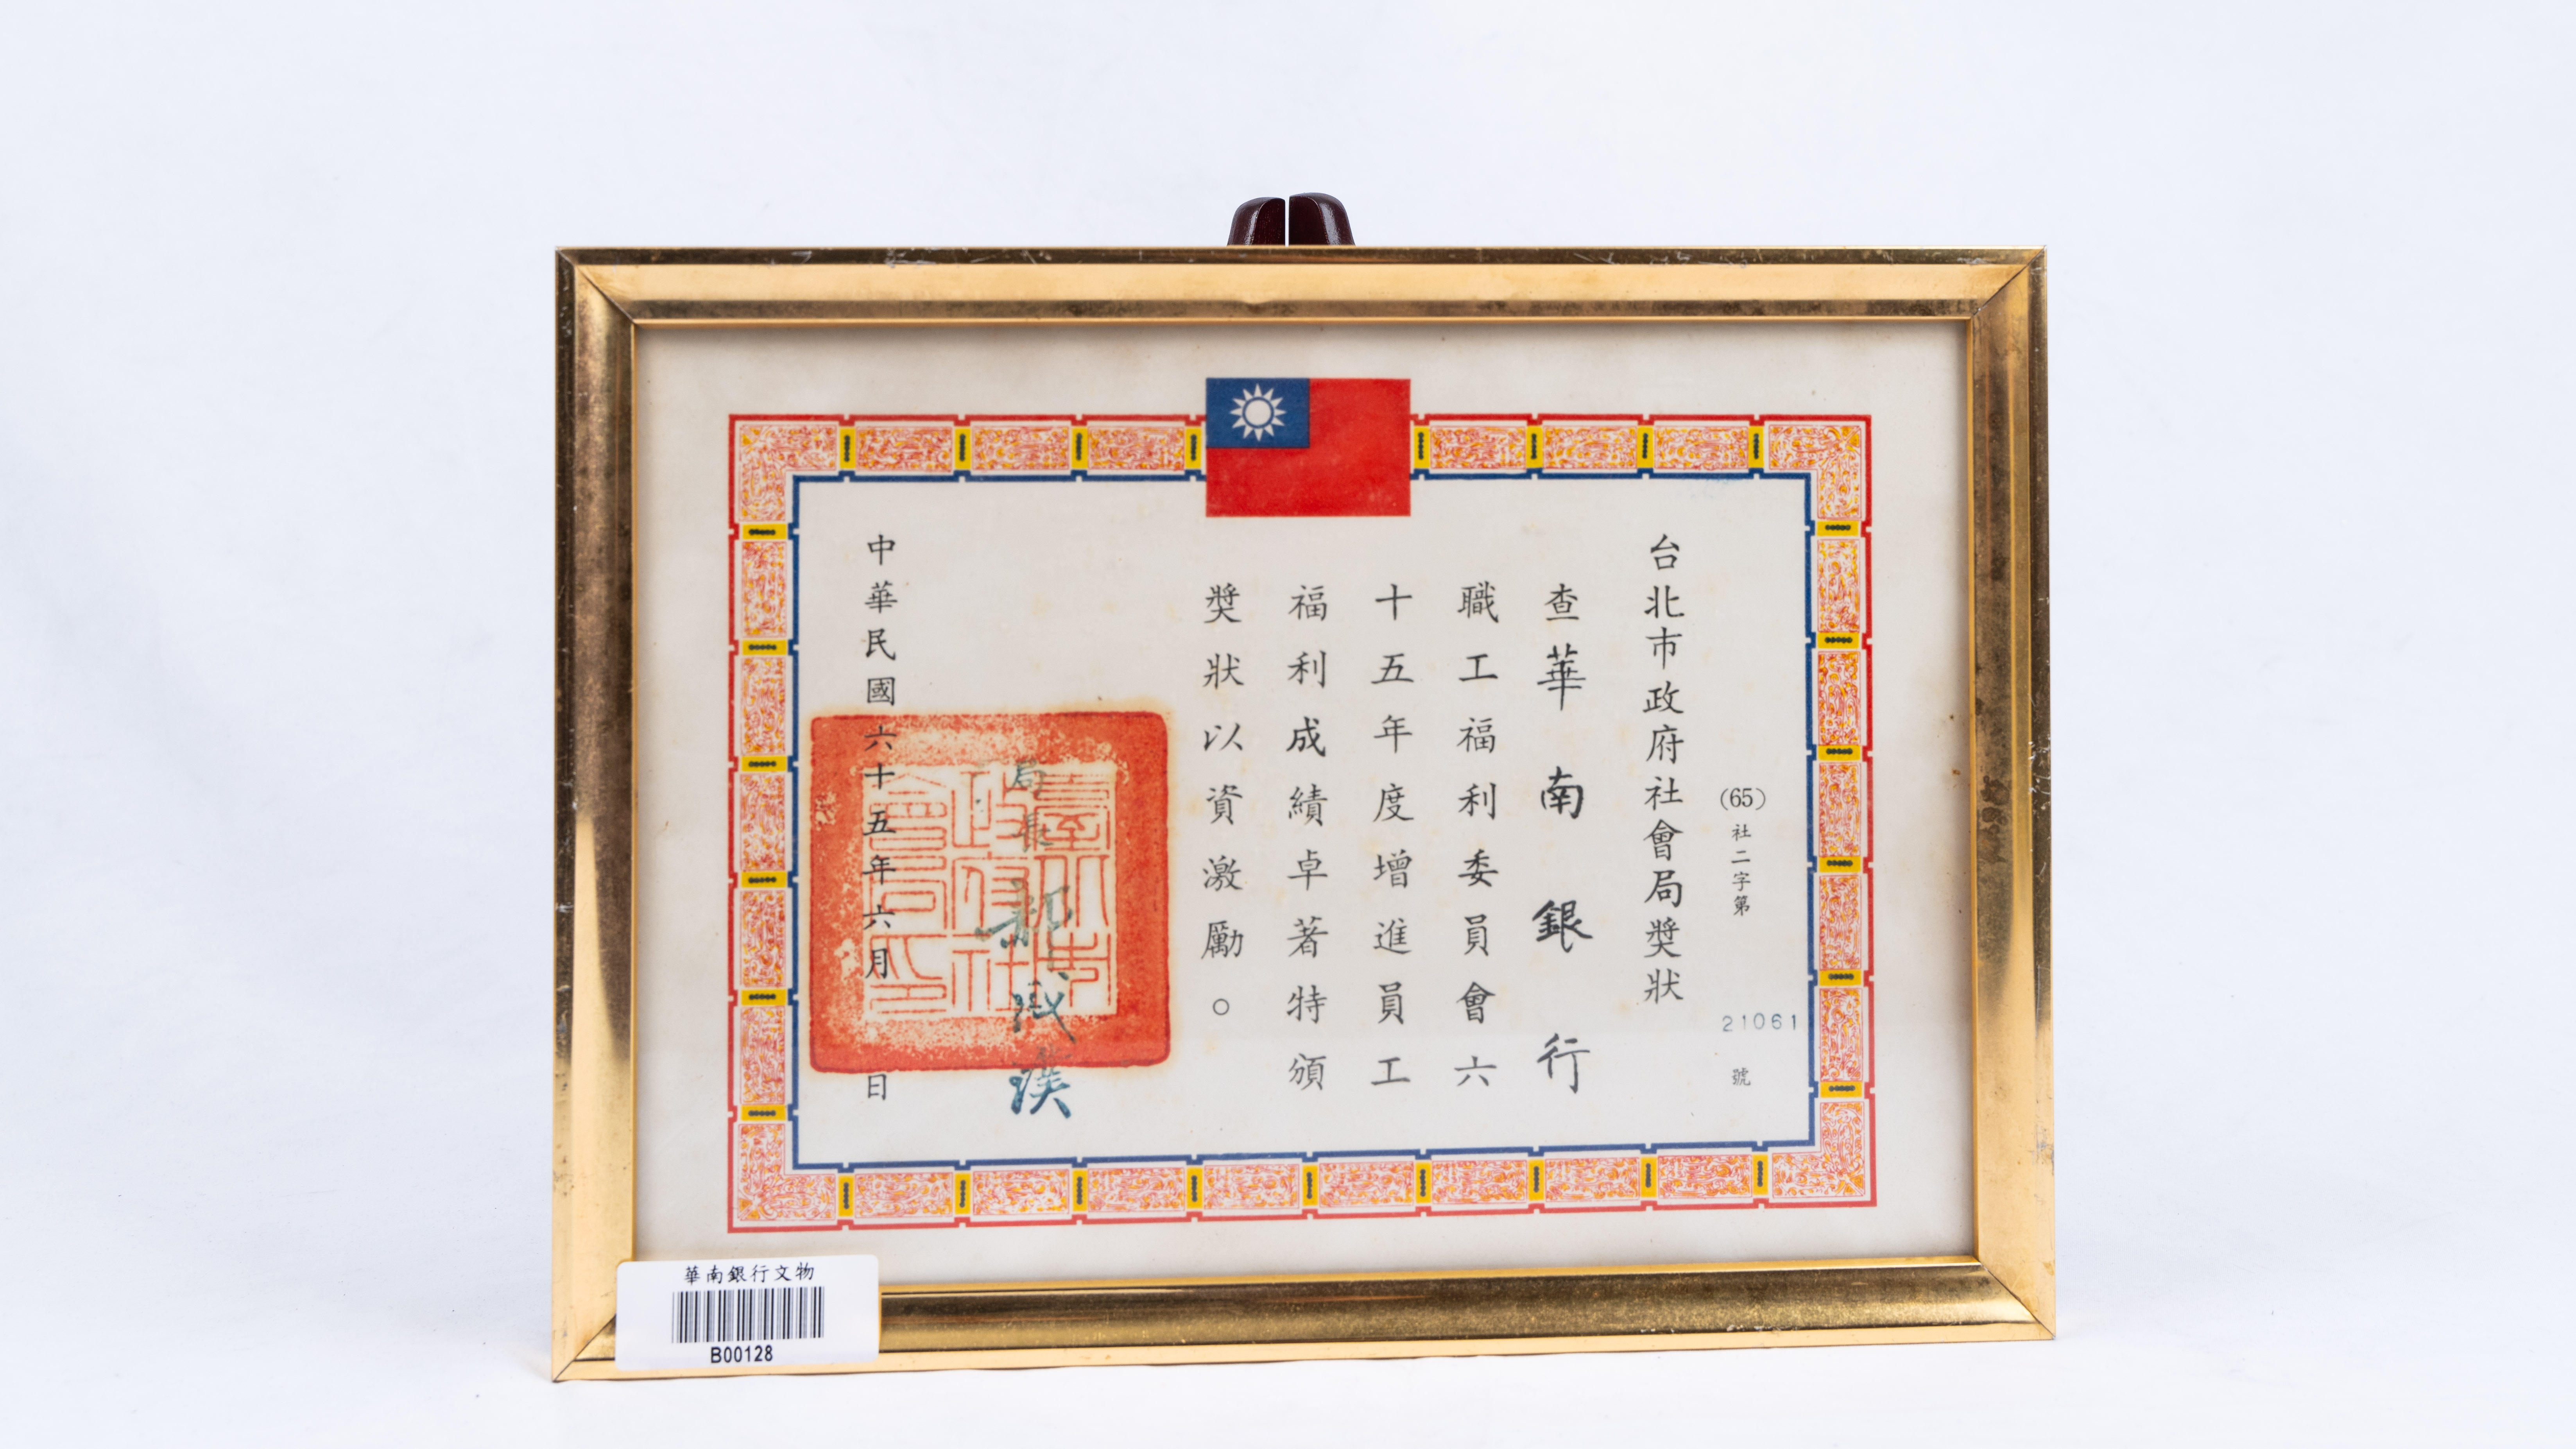 台北市政府社會局獎狀
(65)社二字第21061號
查華南銀行
職工福利委員會六
十五年度增進員工
福利成績卓著特頒
獎狀以資激勵。
局長郝成璞
中華民國六十五年六月 日
臺北市政府社會局印
華南銀行文物
B00128